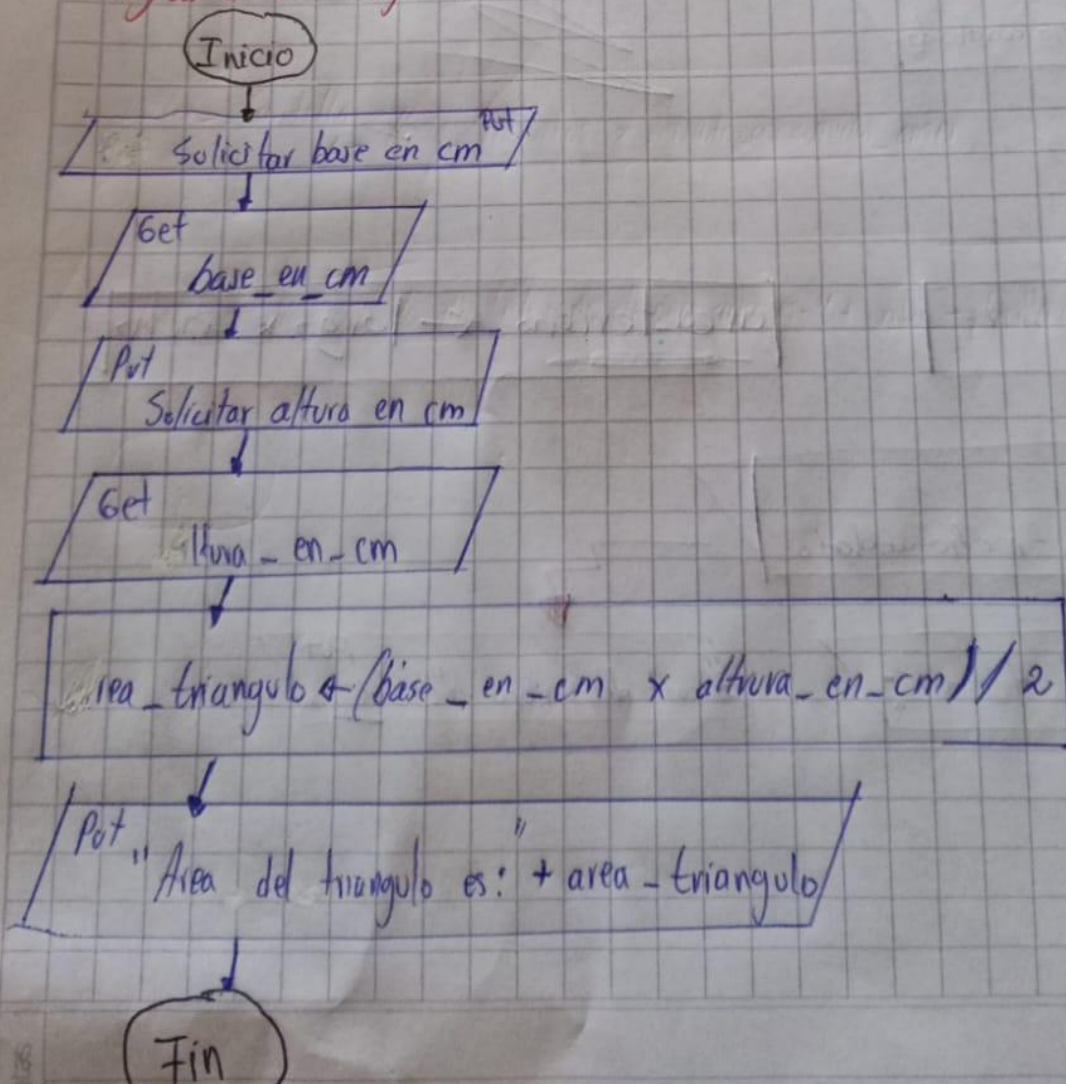 Inicio
Put
Solicitar base en cm
Get
base_en_cm
Put
Solicitar altura en cm
Get
altura_en_cm
area_triangulo ← (base_en_cm x altrura_en_cm) / 2
Put
"Area del triangulo es:" + area_triangulo
Fin